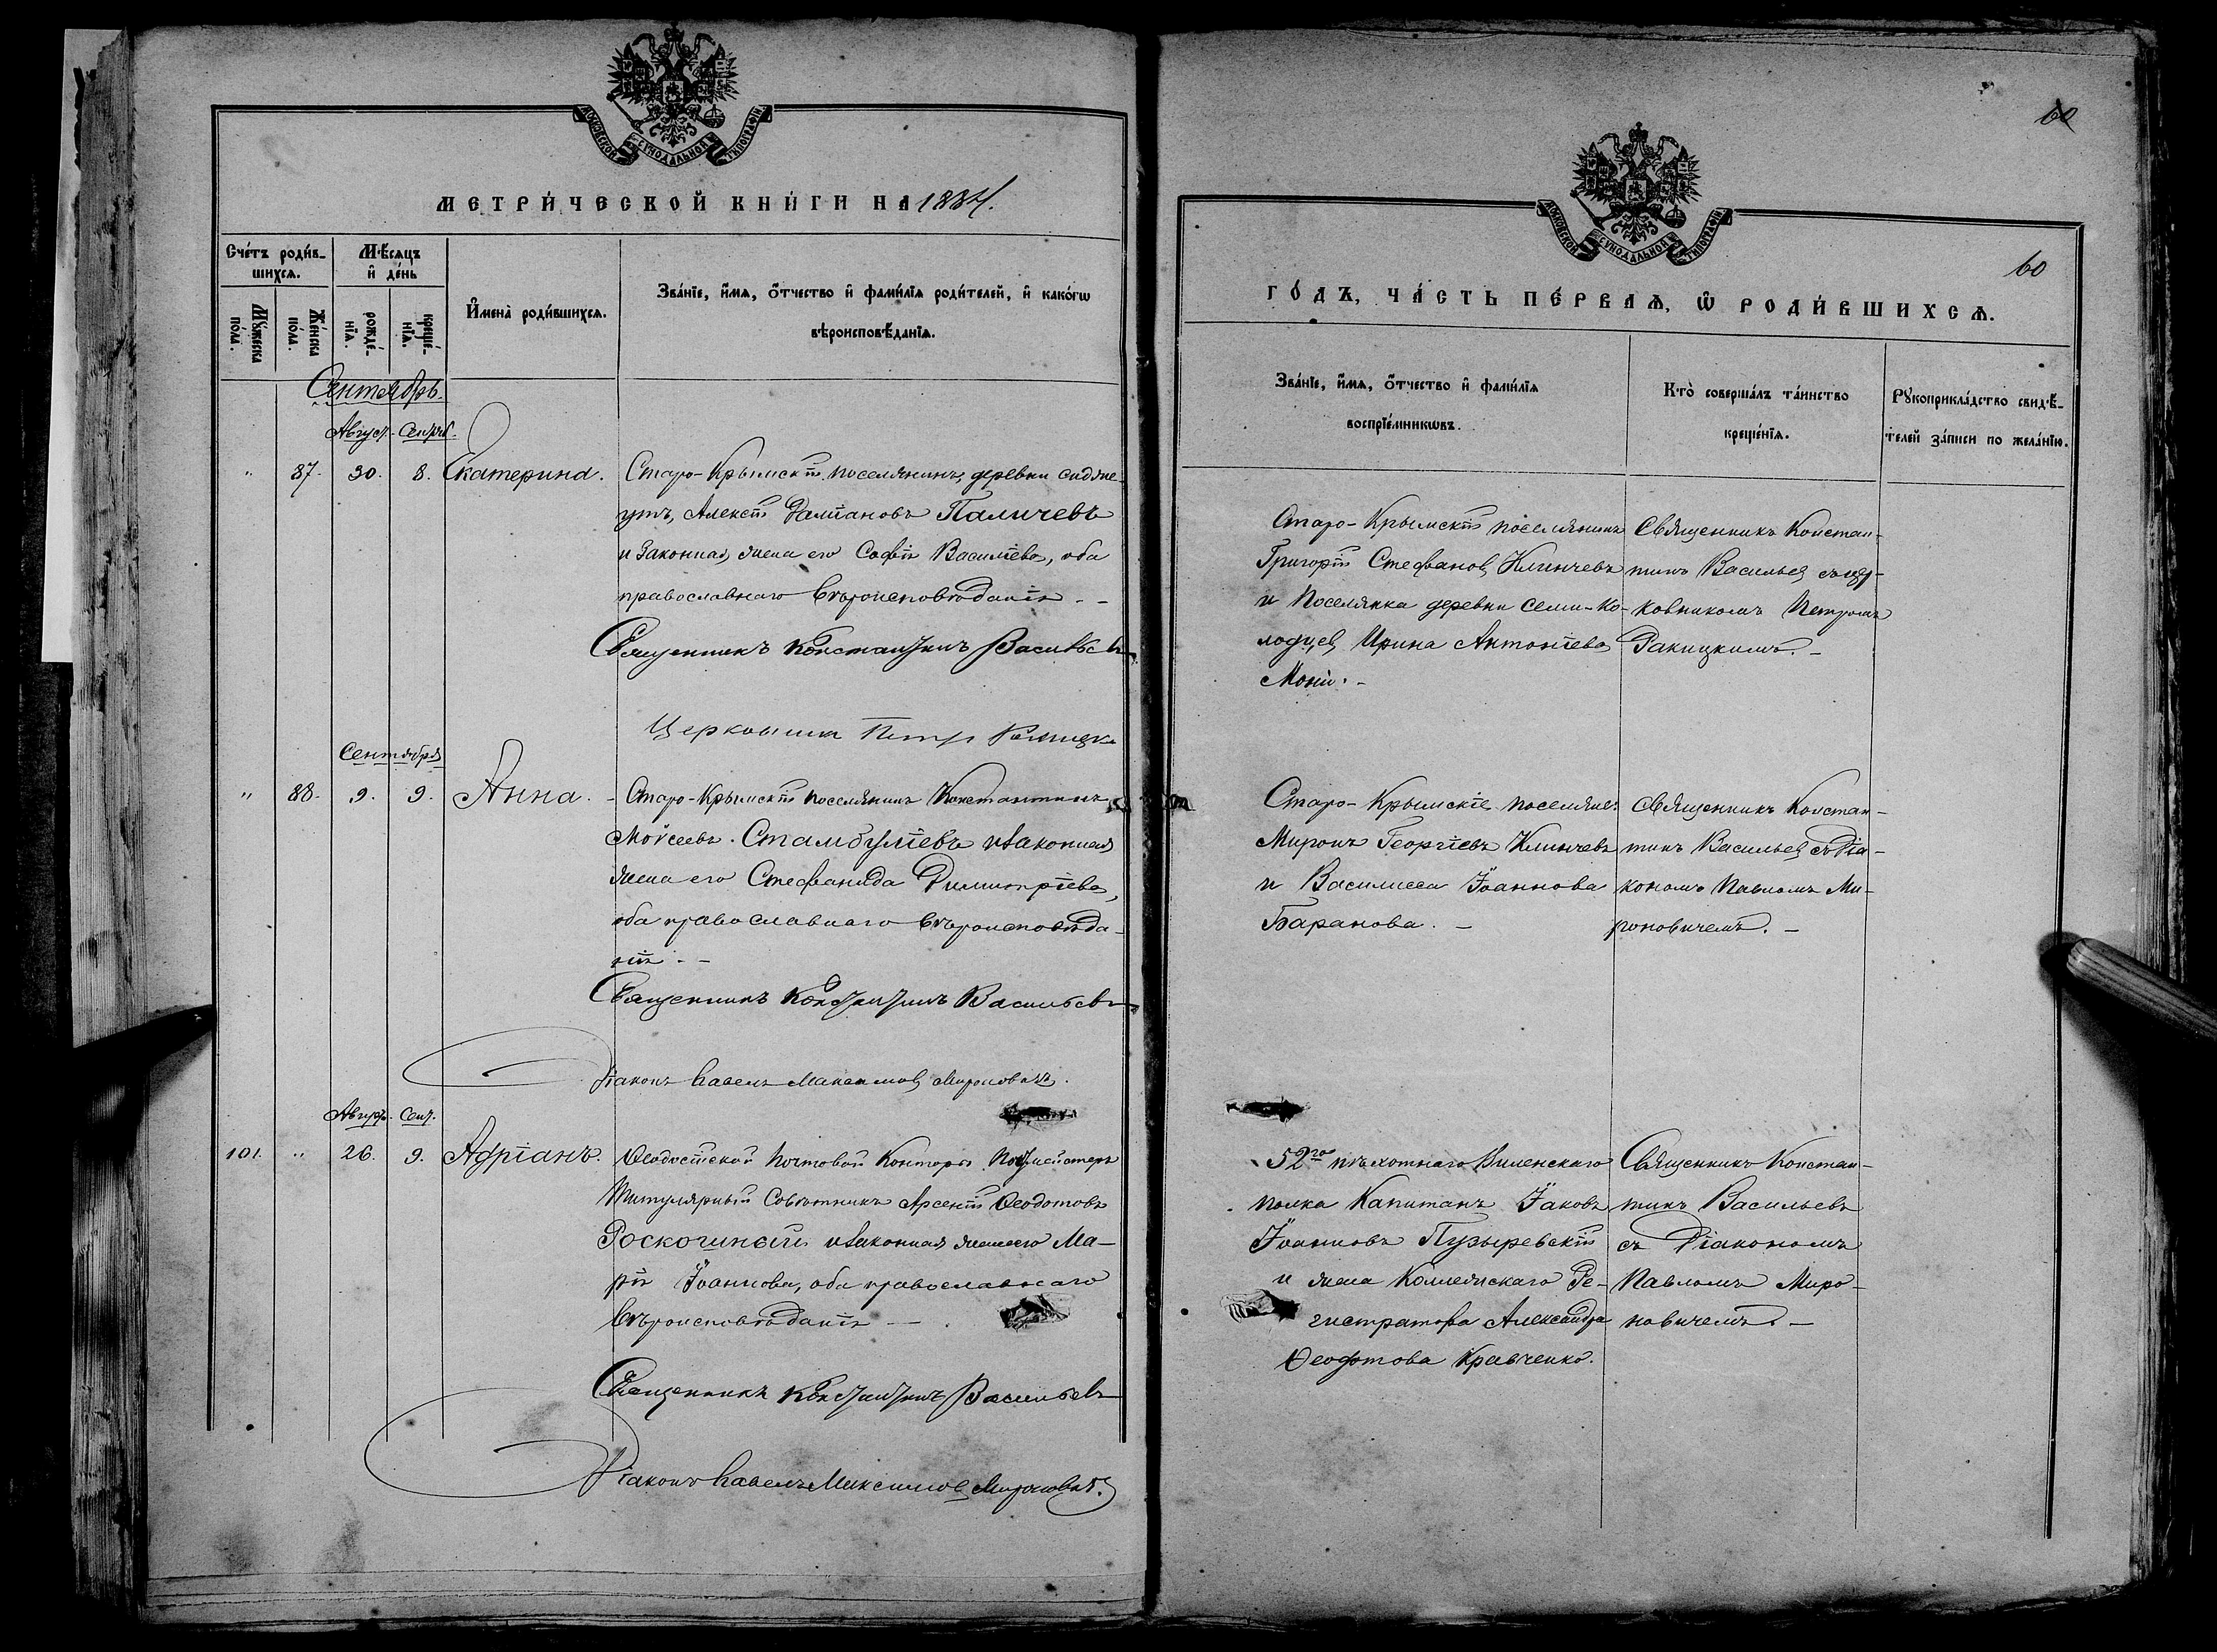 МОСКОВСКОЙ СУНОДАЛЬНОЙ ТИПОГРАФІИ
МЕТРИ́ЧЕСКОЙ КНИ́ГИ НА 1884.
Сче́тъ роди́в-
шихсѧ.
Мѣ́сѧцъ
и҆ де́нь
Мꙋ́жеска
по́ла.
Же́нска
по́ла.
рожде́-
нїѧ.
креще́-
нїѧ.
И҆мена̀ роди́вшихсѧ.
Зва́нїе, и҆́мѧ, ѻ҆́тчество и҆ фами́лїѧ роди́телей, и҆ како́гѡ
вѣроисповѣ́данїѧ.
Сентябрь.
Август. Сентяб.
" 87. 30. 8. Екатерина.
Старо-Крымскій поселянинъ, деревни
Алексій Паличевъ
и законная жена его Софія Василіева, оба
православнаго вѣроисповѣданія. -
Священникъ Константинъ Васильевъ
Церковникъ Петръ
Сентября
" 88. 9. 9. Анна.
Старо-Крымскій поселянинъ Константинъ
Моѵсеевъ. Стамбуліевъ и законная
жена его Стефанида Димитріева,
оба православнаго вѣроисповѣда-
нія. -
Священникъ Константинъ Васильевъ
Діаконъ Павелъ Максимовъ Мироновичъ.
Август. Сент.
101. " 26. 9. Адріанъ.
Ѳеодосійской Почтовой Конторы Почтмейстеръ
Титулярный Совѣтникъ Арсеній Ѳеодотовъ
и законная жена его Ма-
рія Іоаннова, оба православнаго
вѣроисповѣданія -
Священникъ Константинъ Васильевъ
Діаконъ Павелъ Максимовъ Мироновичъ.
60
МОСКОВСКОЙ СУНОДАЛЬНОЙ ТИПОГРАФІИ
60
ГО́ДЪ, ЧА́СТЬ ПЕ́РВАѦ, Ѡ҆ РОДИ́ВШИХСѦ.
Зва́нїе, и҆́мѧ, ѻ҆́тчество и҆ фами́лїѧ
воспрїе́мникѡвъ.
Кто̀ соверша́лъ та́инство
креще́нїѧ.
Рꙋкоприкла́дство свидѣ́-
телей за́писи по жела́нїю.
Старо-Крымскій поселянинъ
Григорій Стефановъ Клинчевъ
и поселянка деревни Семи-Ко-
лодцевъ Ирина Антоніева
Священникъ Констан-
тинъ Васильевъ съ цер-
ковникомъ Петромъ
Ракицкимъ. -
Старо-Крымскіе поселяне:
Миронъ Георгіевъ Клинчевъ
и Василисса Іоаннова
Баранова. -
Священникъ Констан-
тинъ Васильевъ съ діа-
кономъ Павломъ Ми-
роновичемъ. -
52го пѣхотнаго Виленскаго
полка Капитанъ Іаковъ
Іоанновъ Пузыревскій
и жена Коллежскаго Ре-
гистратора Александра
Ѳеодотова Кравченко.
Священникъ Констан-
тинъ Васильевъ
съ Діакономъ
Павломъ Миро-
новичемъ. -